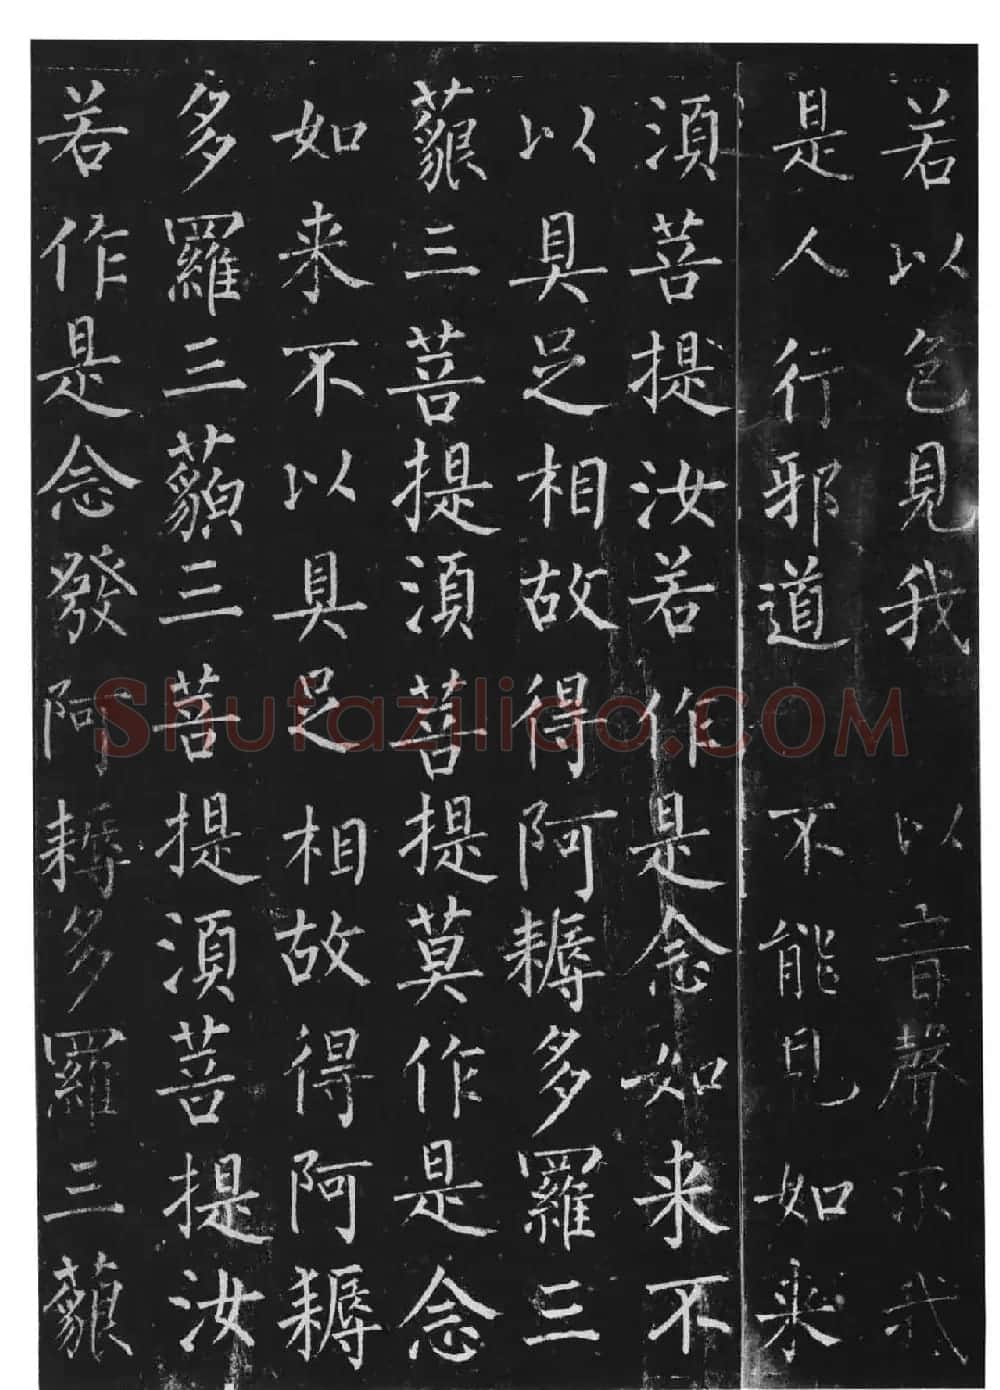 若以色見我　以音聲求我
是人行邪道　不能見如来
湏菩提汝若作是念如来不
以具足相故得阿耨多羅三
藐三菩提湏菩提莫作是念
如来不以具足相故得阿耨
多羅三藐三菩提湏菩提汝
若作是念發阿耨多羅三藐
Shufaziliao.COM